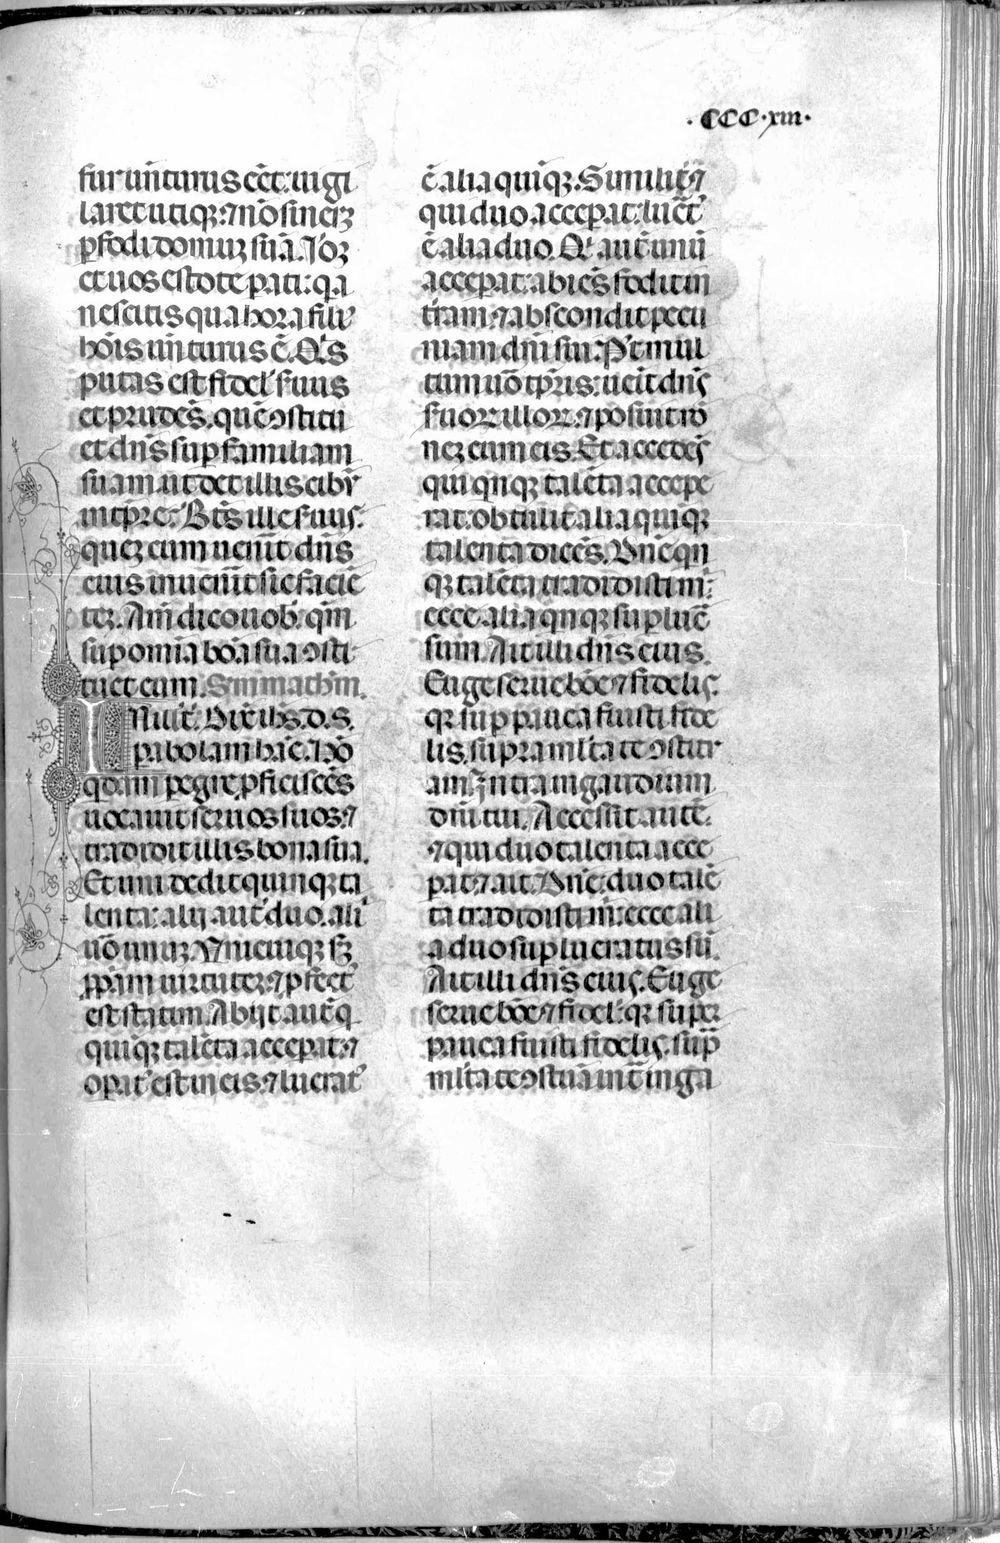 .CCC.xiii.
fur uẽturus eẽt: uigi
laret utiqꝫ: ⁊ nõ sineꝫ
ꝑfodi domuꝫ suã. Iõꝫ
et uos estote pati: qa
nescitis qua hora fili᾽
hõis uẽturus ẽ. Q᾽s
putas est fidel᾽ s᾽uus
et prudẽs. quẽ ꝯstitu
et dñs suꝑ familiam
suam ut det illis cibũ
in tp̃re. Bt̃s ille s᾽uus.
queꝫ cum uenit dñs
eius inuenit sic faciẽ
teꝫ. Am̃ dico uob᾽ qm̃
suꝑ omĩa bõa sua ꝯsti
tuet eum. S᾽m math̃m.
IN illo t᾽. Dixit ihs. d. s.
pabolam hãc. Hõ
qdam pegre ꝓficiscẽs
uocauit seruos suos: ⁊
tradidit illis bona sua.
Et uni dedit quinqꝫ ta
lenta: alij aut᾽ duo. alij
uõ unuꝫ. Vnicuiqꝫ sꝫ
ꝓpam uirtuteꝫ. ⁊ ꝓfect᾽
est statim. Abijt aut᾽ q
quiqꝫ talẽta acceꝑat: ⁊
opat᾽ est in eis. ⁊ lucrat᾽
ẽ alia quiqꝫ. Similit᾽ ⁊
qui duo acceꝑat: lucrat᾽
ẽ alia duo. Q᾽ aut᾽ unũ
acceꝑat: abiẽs fodit in
t᾽ram. ⁊ abscondit pecu
niam dñi sui. P᾽ mul
tum uõ tp̃ris: uenit dñs
s᾽uoꝝ illoꝝ. ⁊ posuit ro
neꝫ cum eis. Et accedẽs
qui qnqꝫ talẽta accepe
rat: obtulit alia quiqꝫ
talenta dicẽs. Dñe qn
qꝫ talẽta tradidisti m᾽:
ecce alia qnqꝫ suꝑlucrat᾽
sum. Ait illi dñs eius.
Euge serue bõe ⁊ fidelis.
qꝛ suꝑ pauca fuisti fide
lis. supra ml᾽ta te ꝯstitu
am. Intra in gaudium
dñi tui. Accessit autẽ.
⁊ qui duo talenta acce
ꝑat ⁊ ait. Dñe: duo talẽ
ta tradidisti m᾽: ecce ali
a duo suꝑlucratus sũ.
Ait illi dñs eius. Euge
serue bõe ⁊ fidel᾽: qꝛ super
pauca fuisti fidelis. supra
ml᾽ta te ꝯstituã. int᾽ in ga